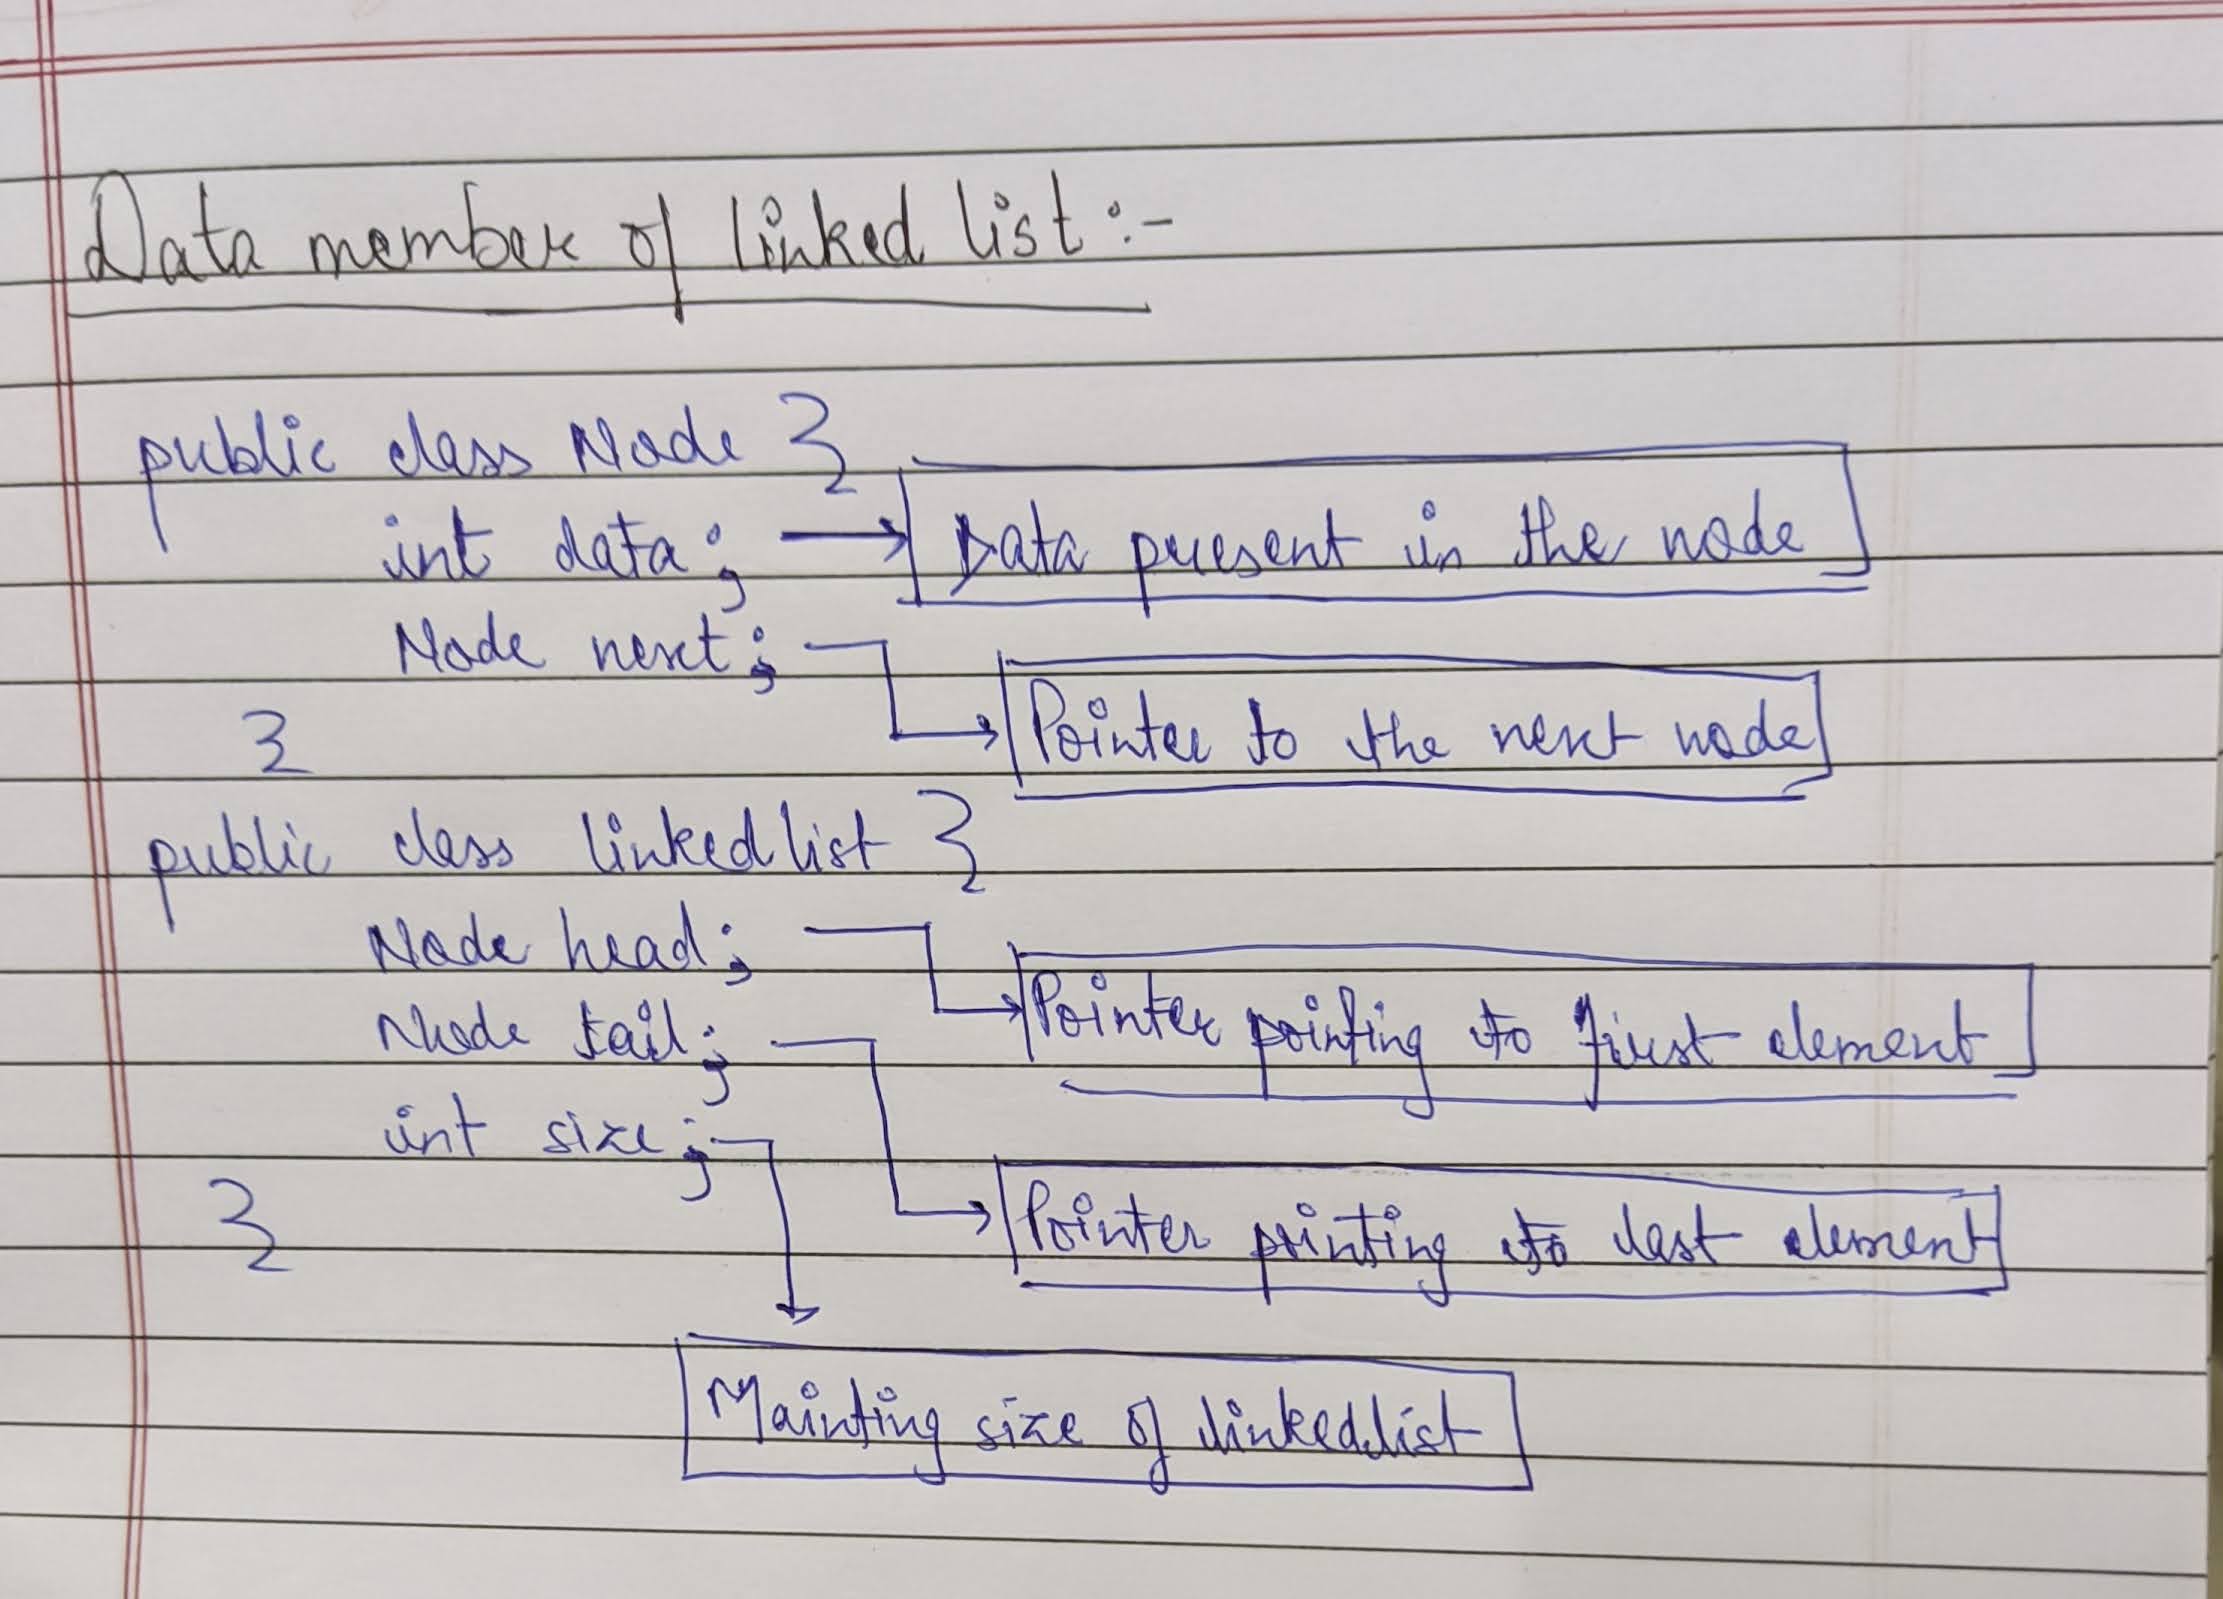 Data member of linked list :-
public class Node {
int data; → Data present in the node
Node next;
Pointer to the next node
}
public class linkedlist {
Node head;
Pointer pointing to first element
Node tail;
int size;
Pointer pointing to last element
}
Mainting size of linkedlist